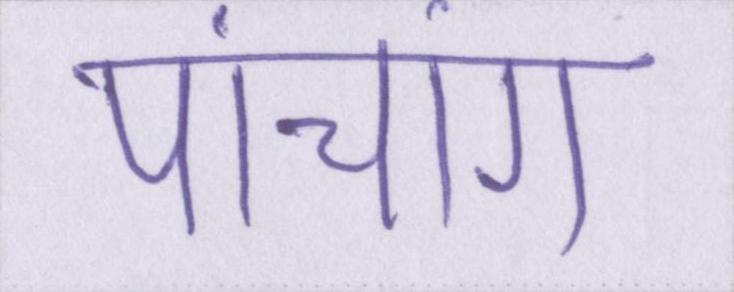 पांचांग